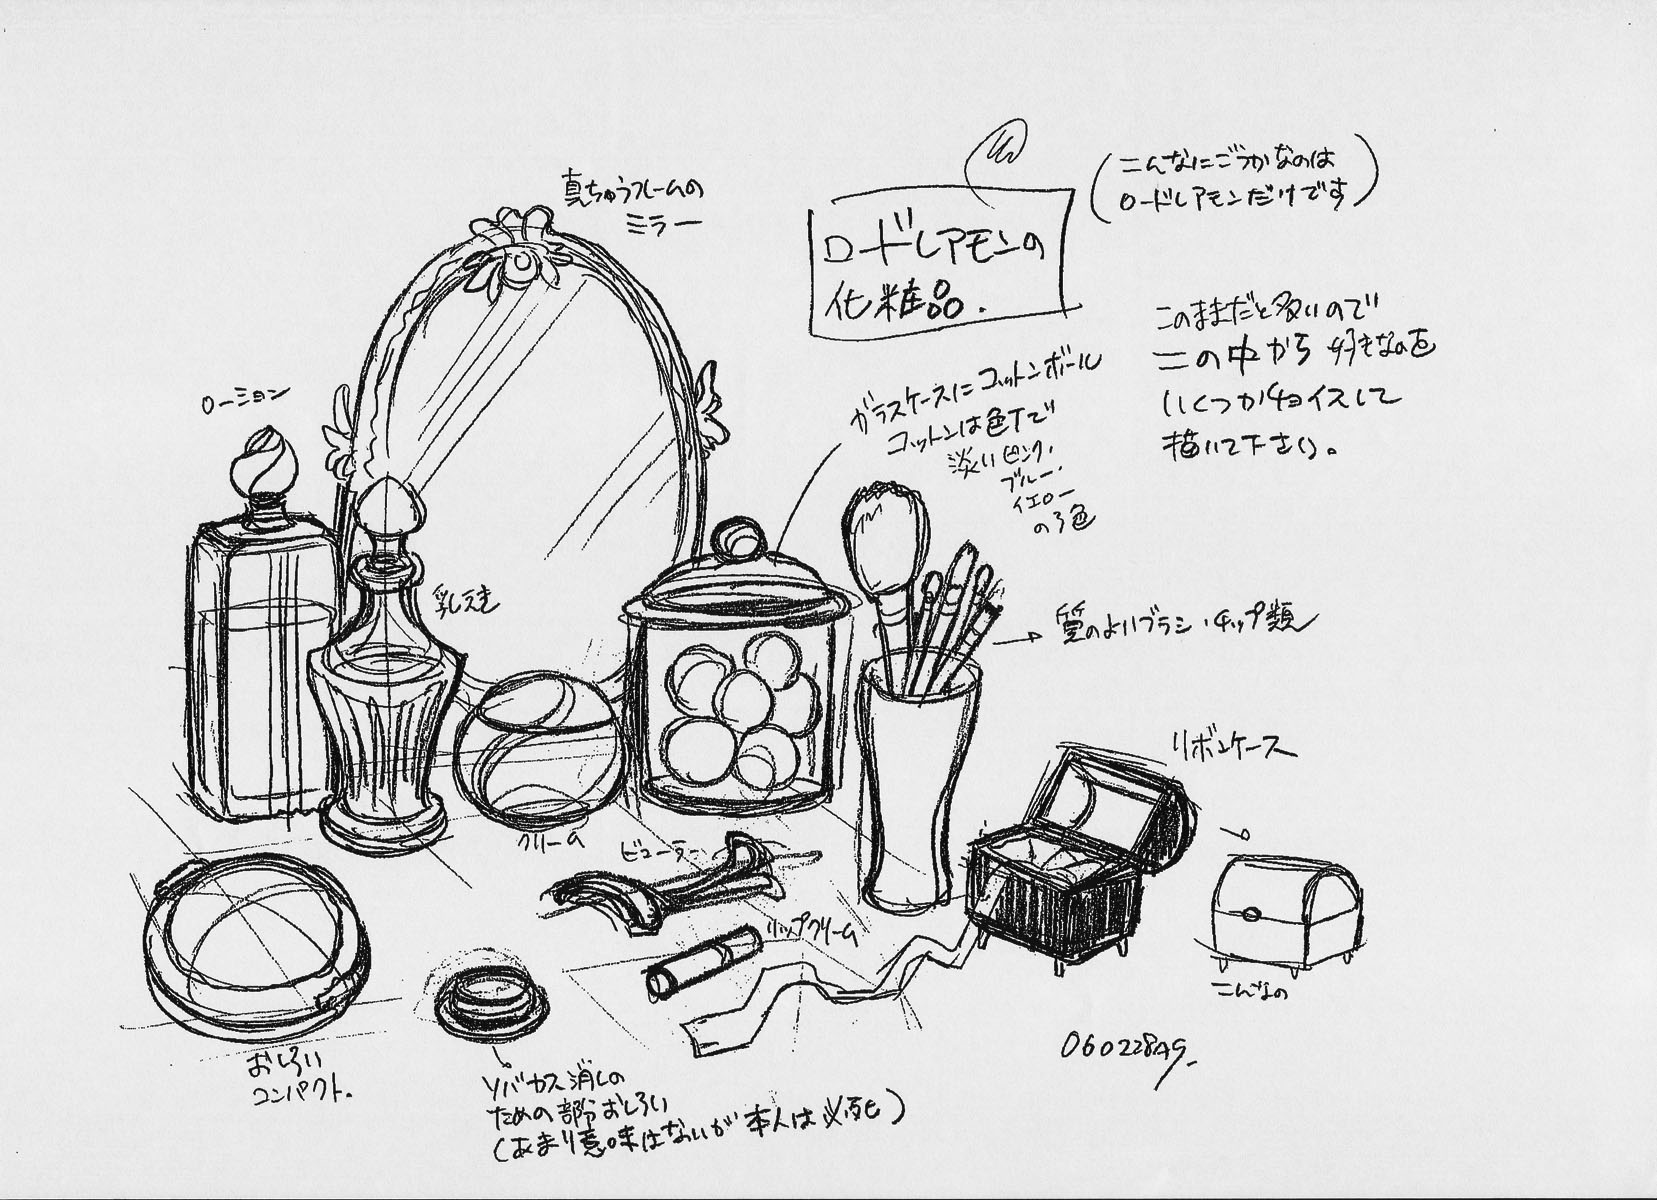 真ちゅうフレームの
ミラー
ロードレアモンの
化粧品.
(こんなにごうかなのは
ロードレアモンだけです)
このままだと多いので
この中から好きなのを
いくつかチョイスして
描いて下さい。
ローション
ガラスケースにコットンボール
コットンは色Tで
淡いピンク・
ブルー・
イエロー
の3色
乳えき
→質のよいブラシ・チップ類
リボンケース
クリーム
ビューラー
リップクリーム
こんなの
おしろい
コンパクト.
ソバカス消しの
ための部分おしろい
(あまり意味はないが本人は必死)
060228AG